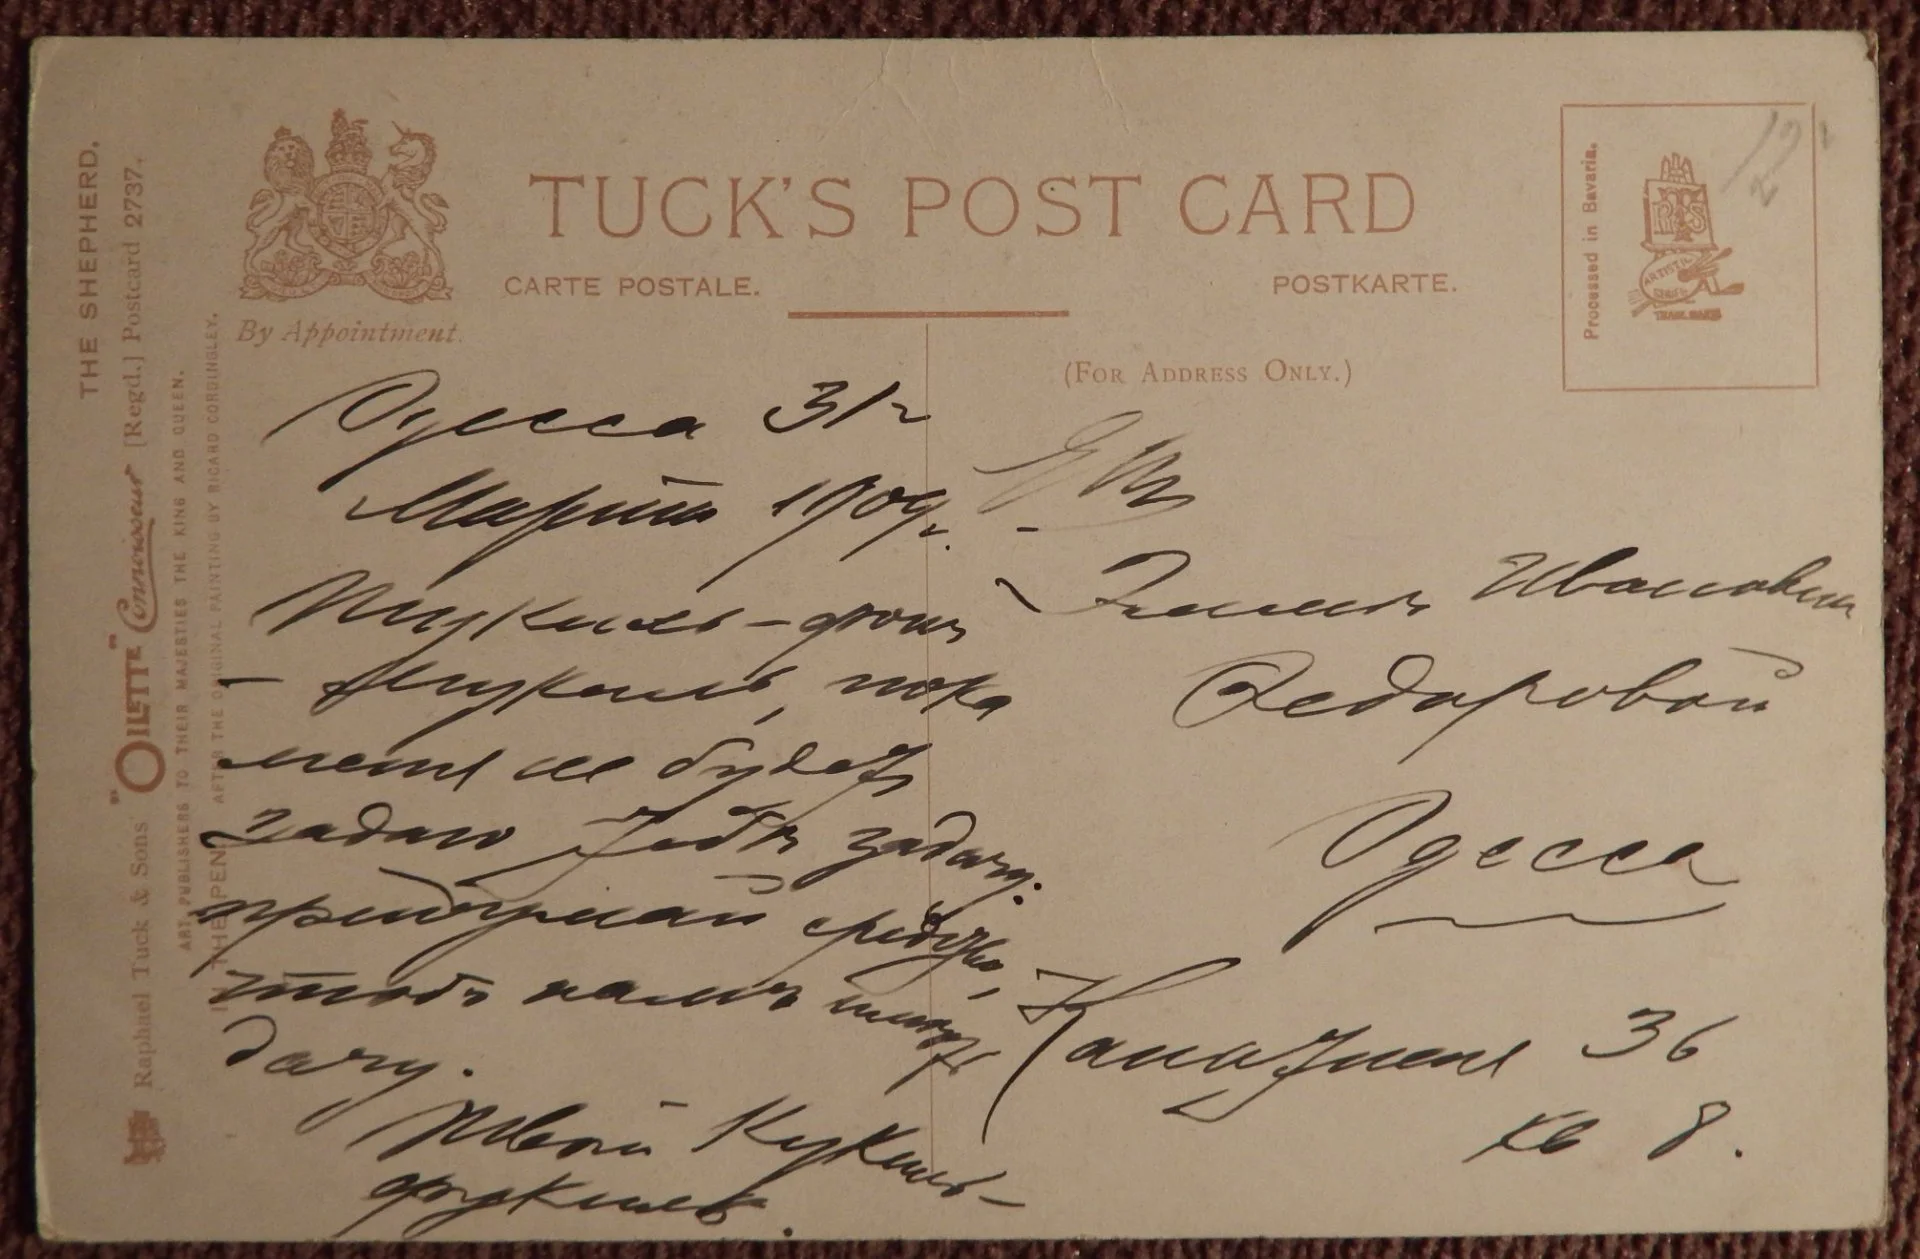 THE SHEPHERD.
Raphael Tuck & Sons' "OILETTE" Connoisseur [Regd.] Postcard 2737.
ART PUBLISHERS TO THEIR MAJESTIES THE KING AND QUEEN.
IN THE PEN, AFTER THE ORIGINAL PAINTING BY RICARD CORDINGLEY.
By Appointment.
TUCK'S POST CARD
CARTE POSTALE.
POSTKARTE.
(FOR ADDRESS ONLY.)
Processed in Bavaria.
ARTISTIC
SERIES
TRADE MARK
Одесса 31го
Марта 1909г.
пока
меня не будетъ
задаю Тебѣ задачу.
придумай средство,
чтобъ намъ
дачу.
Твой Кукиль-
фукиль.
Е. В.
Ивановнѣ
Федоровой
Одесса
Канатная 36
кв 8.